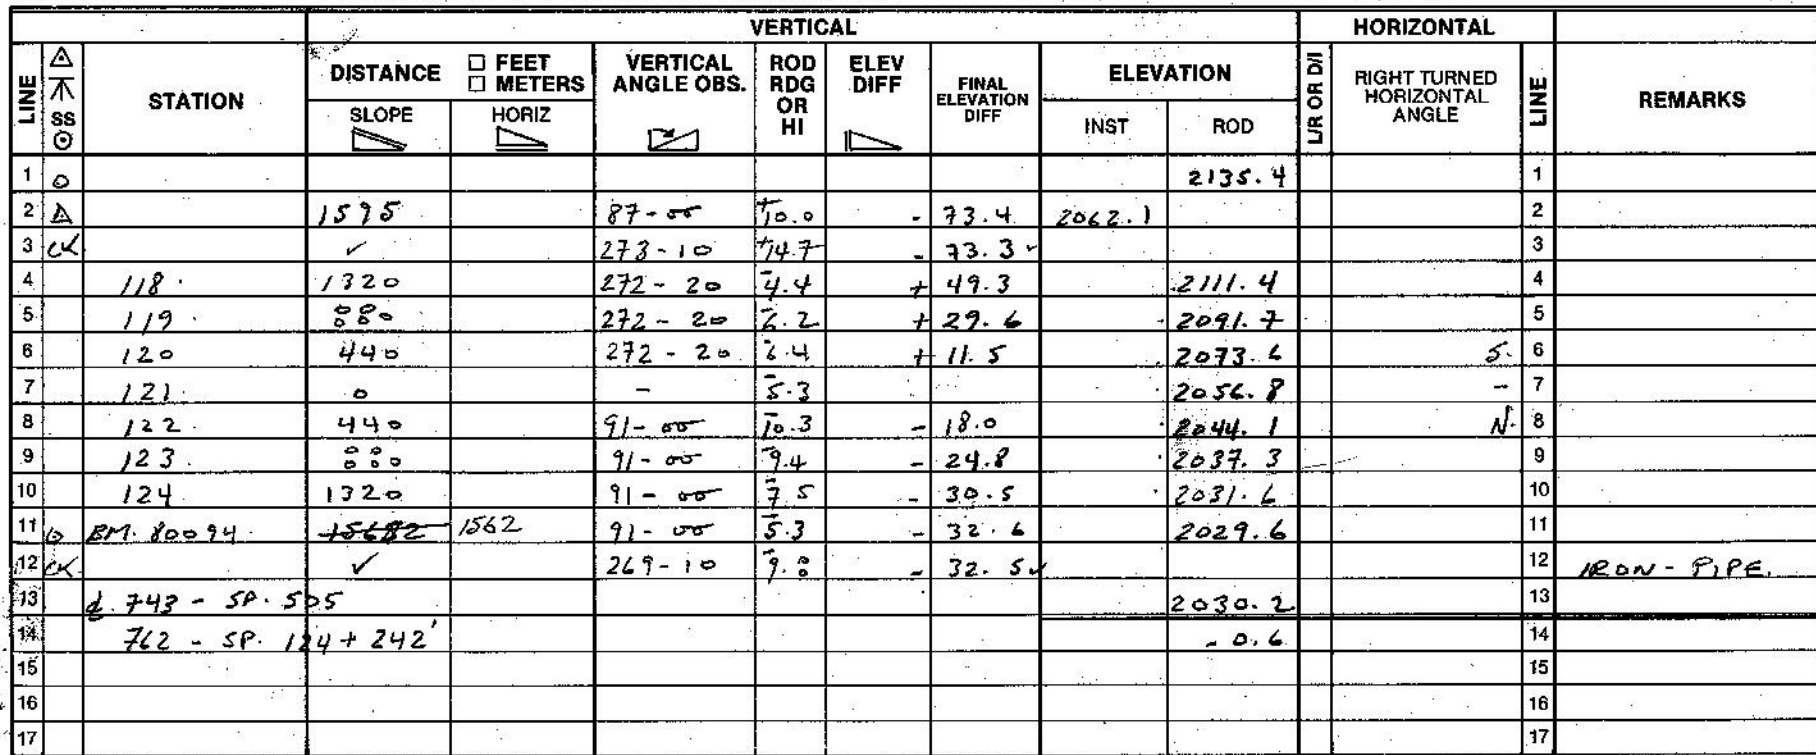 VERTICAL HORIZONTAL
LINE SS STATION DISTANCE □ FEET □ METERS SLOPE HORIZ VERTICAL ANGLE OBS. ROD RDG OR HI ELEV DIFF FINAL ELEVATION DIFF ELEVATION INST ROD L/R OR D/I RIGHT TURNED HORIZONTAL ANGLE LINE REMARKS
1 2135.4 1
2 1595 87-00 +10.0 - 73.4 2062.1 2
3 CK ✓ 273-10 +14.7 - 73.3 ✓ 3
4 118 1320 272-20 -4.4 + 49.3 2111.4 4
5 119 880 272-20 -6.2 + 29.6 2091.7 5
6 120 440 272-20 -6.4 + 11.5 2073.6 S. 6
7 121 0 - -5.3 2056.8 - 7
8 122 440 91-00 -10.3 - 18.0 2044.1 N. 8
9 123 880 91-00 -9.4 - 24.8 2037.3 9
10 124 1320 91-00 -7.5 - 30.5 2031.6 10
11 BM. 80094 1562 91-00 -5.3 - 32.6 2029.6 11
12 CK ✓ 269-10 -9.8 - 32.5 ✓ 12 IRON-PIPE.
13 743 - SP. 505 2030.2 13
14 762 - SP. 124 + 242' - 0.6 14
15 15
16 16
17 17